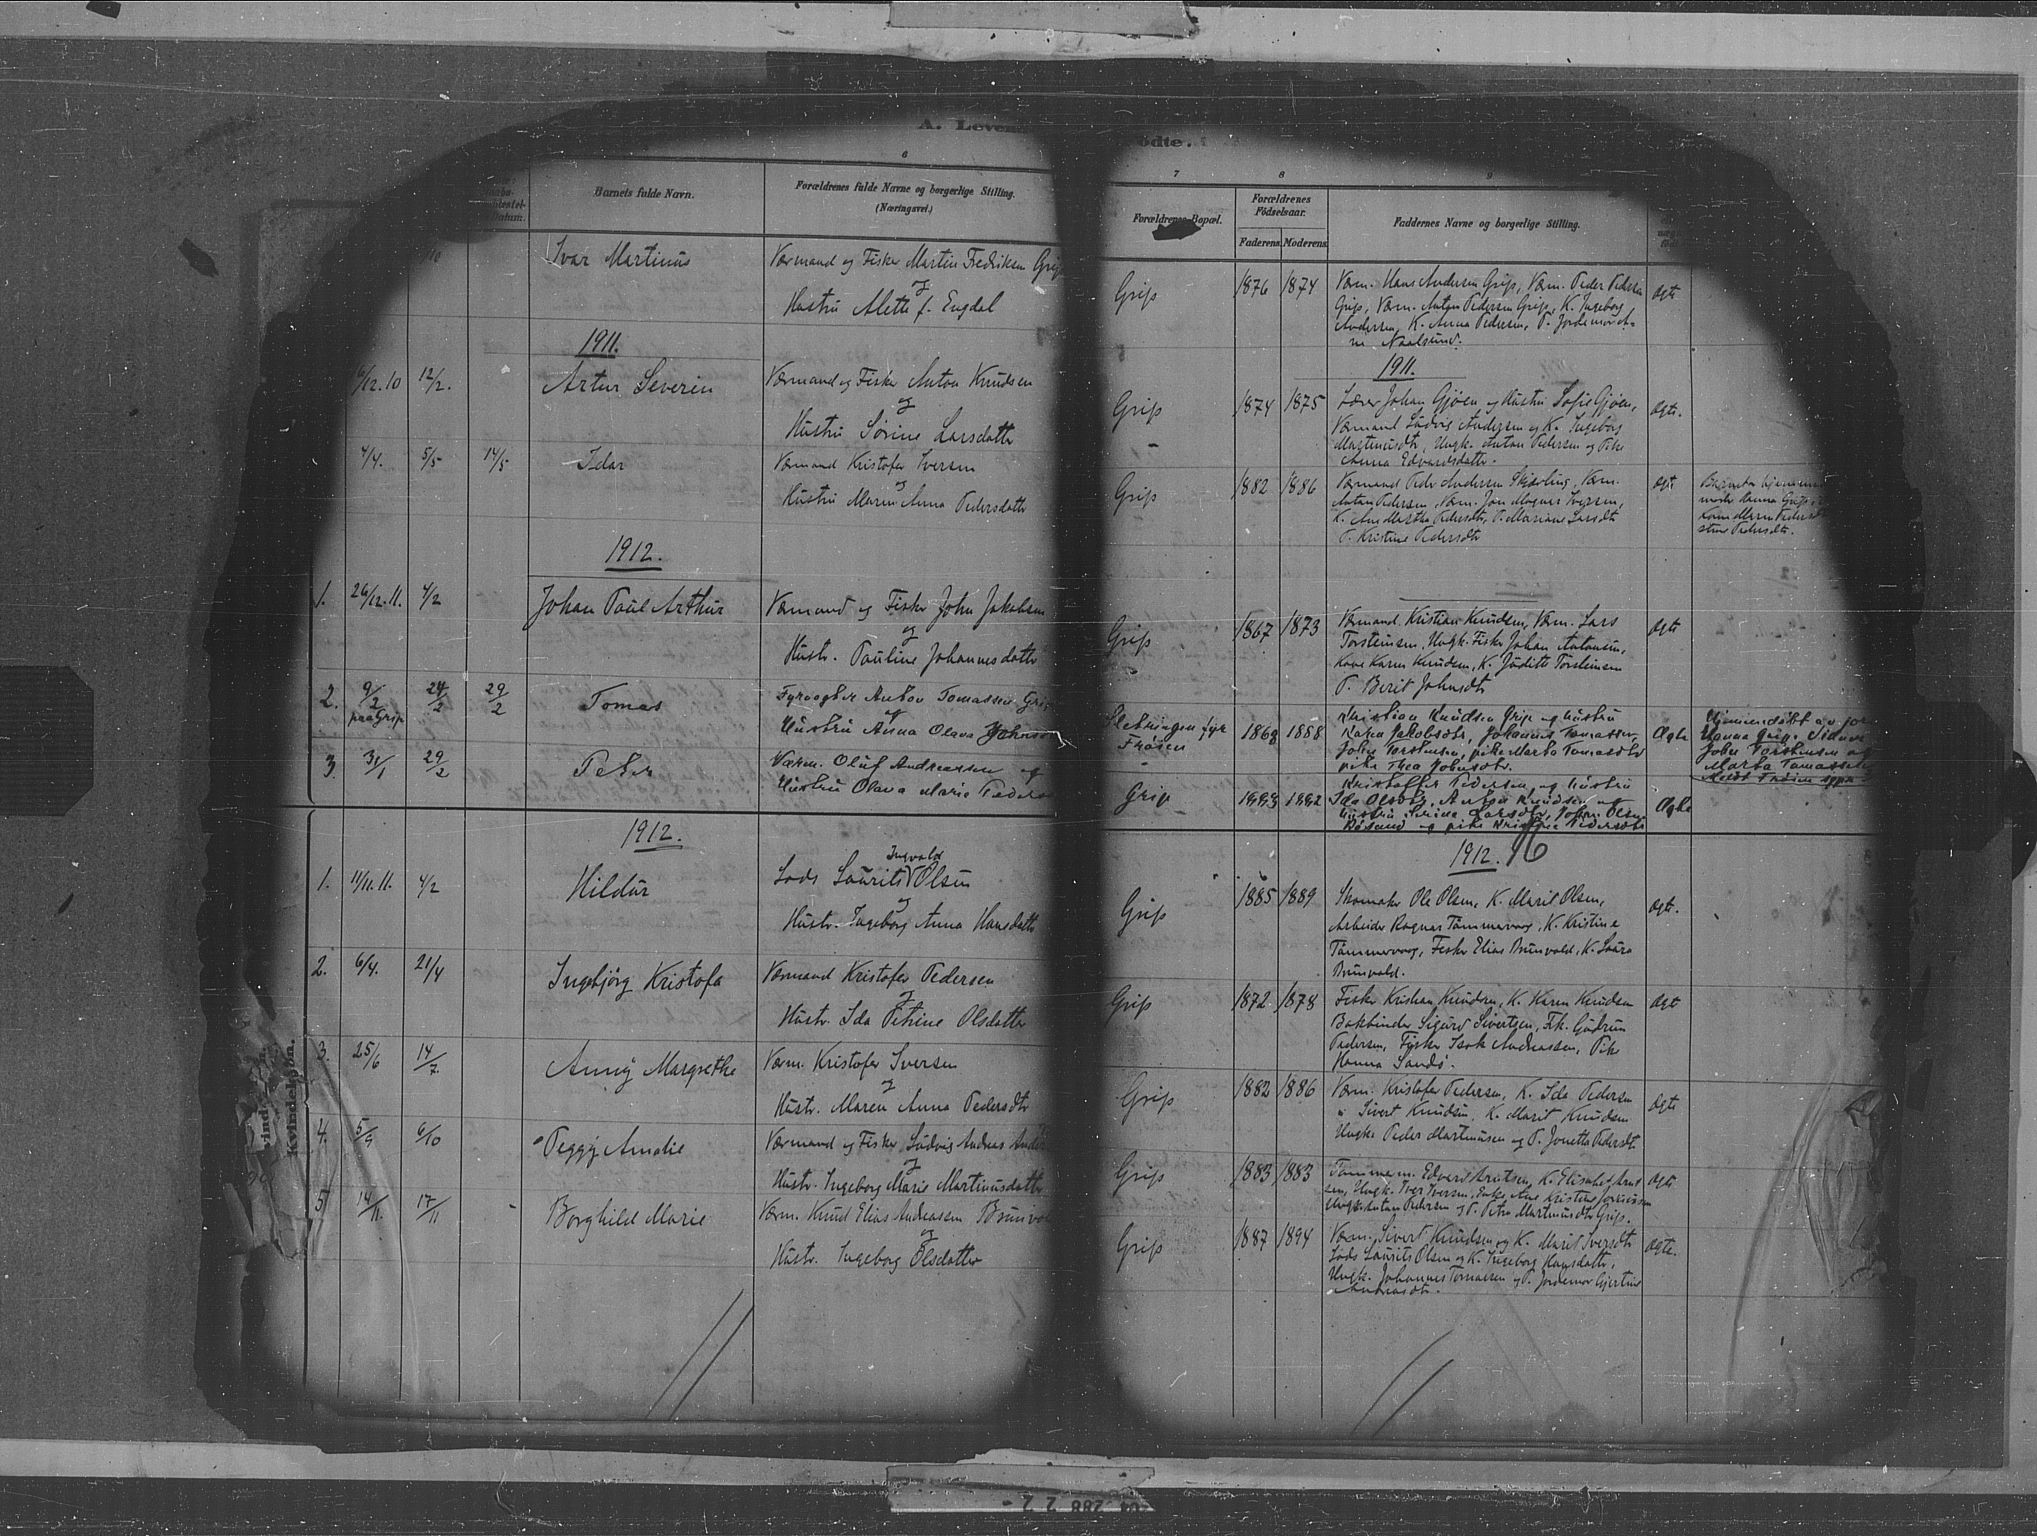 A. Leve
ødte.
6
7
8
9
Barnets fulde Navn.
Forældrenes fulde Navne og borgerlige Stilling.
(Næringsvei.)
Forældrenes Bopæl.
Forældrenes
Fødselsaar.
Faderens.
Moderens.
Faddernes Navne og borgerlige Stilling.
Datum.
Ivar Martinus
Værmand og Fisker Martin Fredriksen Grip
og
Hustru Alette f. Engdal
Grip
1876
1874
Værm. Hans Andersen Grip, Værm. Peder Pedersen
Grip, Værm. Anton Pedersen Grip, K. Ingeborg
Andersen, K. Anna Pedersen, P. Jordemor A-
Naalsund.
Ægte
1911.
1911.
6/12.10
12/2.
Artur Severin
Værmand og Fisker Anton Knudsen
og
Hustru Sørine Larsdatter
Grip
1874
1875
Lærer Johan Gjøen og Hustru Sofie Gjøen,
Værmand Ludvig Andersen og K. Ingeborg
Martinusdt, Ungk. Anton Pedersen og Pike
Anna Edvardsdatter.
Ægte.
4/4.
5/5
14/5
Idar
Værmand Kristofer Iversen
og
Hustru Maren Anna Pedersdatter
Grip
1882
1886
Værmand Peder Andersen Skjævling, Værm.
Anton Pedersen, Værm. Jon Magnus Iversen,
K. Ane Martha Pedersdt, P. Mariane Larsdt
P. Kristine Pedersdt
Ægte
moder Hanna Grip,
Kone Maren Peders
stine Pedersdt.
1912.
1.
26/12.11.
4/2
Johan Paul Arthur
Værmand og Fisker John Jakobsen
og
Hustr. Pauline Johannesdatter
Grip
1867
1873
Værmand Kristian Knudsen, Værm. Lars
Torsteinsen, Ungk. Fisker Johan Antonsen,
Kone Karen Knudsen, K. Juditt Torsteinsen
P. Berit Johnsdt
Ægte
2.
9/2
paa Grip
24/2
29/2
Tomas
Fyrvogter Anton Tomassen Grip
og
Hustru Anna Olava Johns
fyr
Frøien
1868
1888
Kristian Knudsen Grip og hustru
Karen Jakobsdt, Johannes Tomassen,
John Torstensen, pike Marta Tomasdtr
pike Thea Johnsdtr.
Ægte
Hjemmedøbt av jor
Hanna Grip. Vidner
John Torstensen og
Marta Tomasdtr
3
31/1
29/2
Peter
Værm. Oluf Andreassen og
Hustru Olava Marie Peders
Grip
1883
1882
Kristoffer Pedersen og hustru
Ida Olsdtr, Anton Knudsen og
hustru Serine Larsdtr, Johan Olsen
Røsand og pike Kristine Pedersdtr
Ægte
1912.
1912.
Kvindekjøn.
1.
11/11.11.
4/2
Hildur
Ingvald
Lods Laurits Olsen
og
Hustr. Ingeborg Anna Hansdatter
Grip
1885
1889
Skomaker Ole Olsen, K. Marit Olsen,
Arbeider Ragnar Tømmervaag, K. Kristine
Tømmervaag, Fisker Elias Brunvold, K. Laura
Brunvold.
Ægte.
2.
6/4.
21/4
Ingebjørg Kristofa
Værmand Kristofer Pedersen
og
Hustr. Ida Petrine Olsdatter
Grip
1872
1878
Fisker Kristian Knudsen, K. Karen Knudsen
Bokbinder Sigurd Sivertsen, Frk. Gudrun
Pedersen, Fisker Isak Andreassen, Pike
Hanna Sandø.
Ægte
3.
25/6
14/7
Anny Margrethe
Værm. Kristofer Iversen
og
Hustr. Maren Anna Pedersdtr
Grip
1882
1886
Værm. Kristofer Pedersen, K. Ida Pedersen
" Sivert Knudsen, K. Marit Knudsen
Ungk. Peder Martinusen og P. Jonetta Pedersdt
Ægte
4.
5/9
6/10
Peggy Amalie
Værmand og Fisker Ludvig Andreas Ander
og
Hustr. Ingeborg Marie Martinusdatter
Grip
1883
1883
Tømmerm. Edvard Knutsen, K. Elisabet Knut
sen, Ungk. Iver Iversen, Enke Ane Kristine
Ungk. Anton Pedersen og P. Petra Martinusdtr Grip.
Ægte
5
14/11.
17/11
Borghild Marie
Værm. Knud Elias Andreassen Brunvo
og
Hustr. Ingeborg Olsdatter
Grip
1887
1894
Værm. Sivert Knudsen og K. Marit Iversdtr
Lods Laurits Olsen og K. Ingeborg Hansdatter,
Ungk. Johannes Tomassen og P. Jordemor Gjertine
Andreasdtr.
Ægte.
288 2 2 -